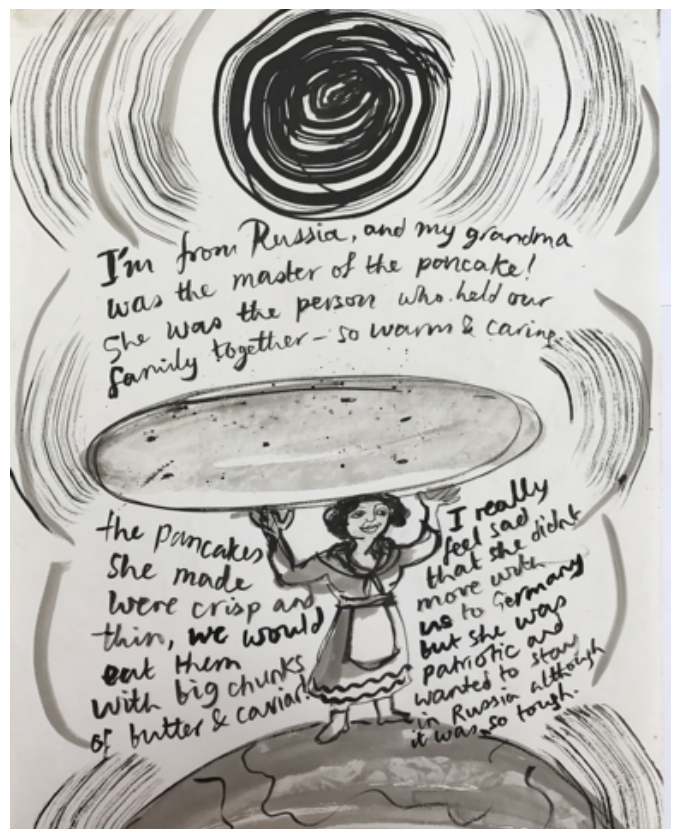 I'm from Russia, and my grandma
was the master of the pancake!
She was the person who held our
family together – so warm & caring.
the pancakes
she made
were crisp and
thin, we would
eat them
with big chunks
of butter & caviar!
I really
feel sad
that she didnt
more with
us to Germany
but she was
patriotic and
wanted to stay
in Russia although
it was so tough.